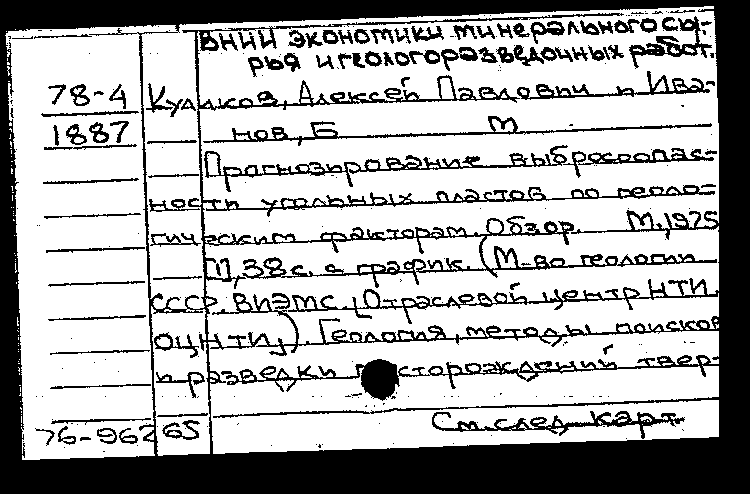 ВНИИ экономики минерального сы-
рья и геологоразведочных работ.
78-4 Куликов, Алексей Павлович и Ива-
1887 нов, Б М
Прогнозирование выбросоопас-
ности угольных пластов по геоло-
гическим факторам. Обзор. М., 1975
М, 38 с. с график. (М-во геологии
СССР. ВИЭМС. Отраслевой центр НТИ.
ОЦНТИ,). Геология, методы поисков
и разведки месторождений твер-
76-96265 См. след. карт.